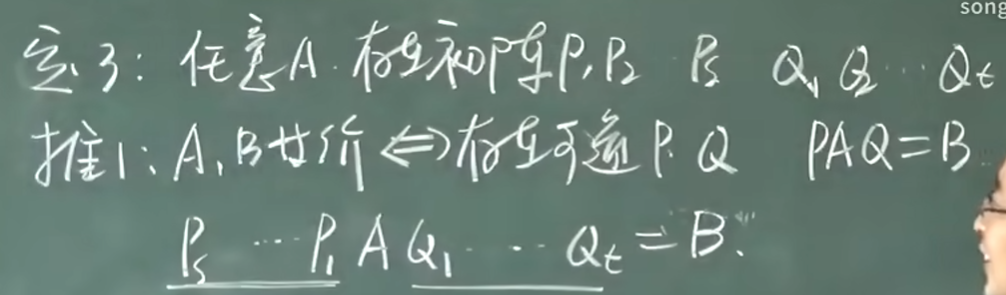 song
定3：任意A.存在初阵P₁P₂ Pₛ Q₁ Q₂ … Qₜ
推1：A,B等价⇔存在可逆P.Q PAQ=B
Pₛ … P₁ A Q₁ … Qₜ = B.